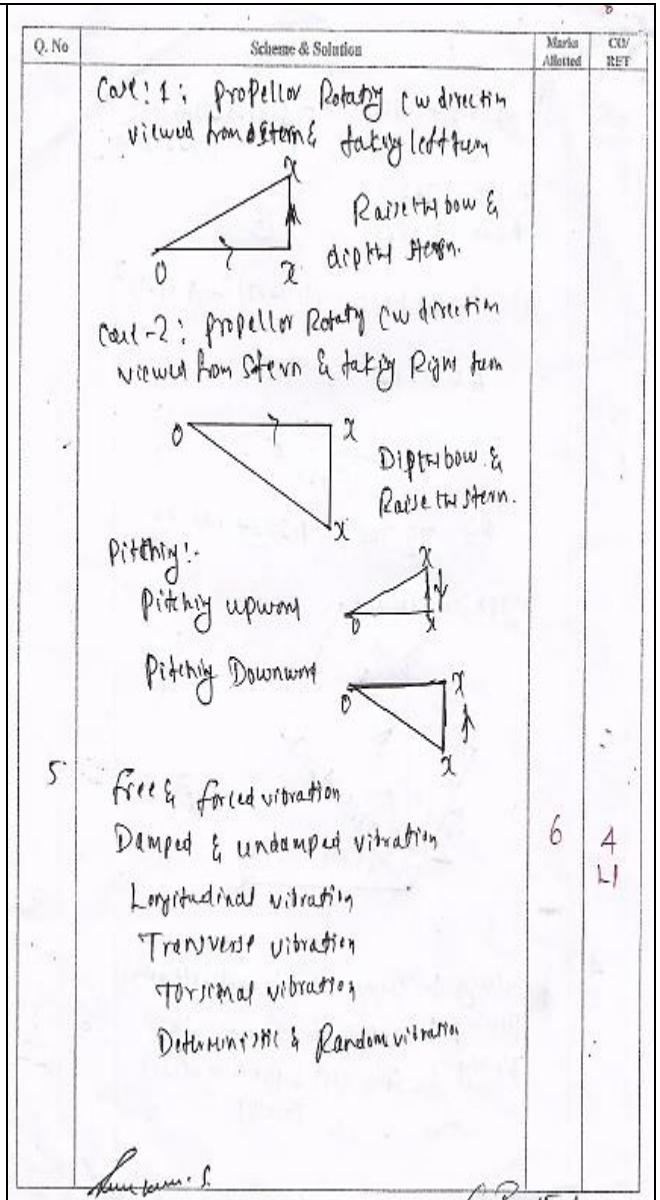 Q. No Scheme & Solution Marks Allotted CO/ RET
Case: 1: Propellor Rotating CW direction
viewed from stern & taking left turn
x
Raise the bow &
dip the stern.
O x
Case-2: Propellor Rotating CW direction
viewed from Stern & taking Right turn
O x
Dip the bow &
Raise the stern.
x
Pitching:-
x
Pitching upword
O x
Pitching Downword
O x
x
5
free & forced vibration
Damped & undamped vibration 6 4
L1
Longitudinal vibration
Transverse vibration
Torsional vibration
Deterministic & Random vibration